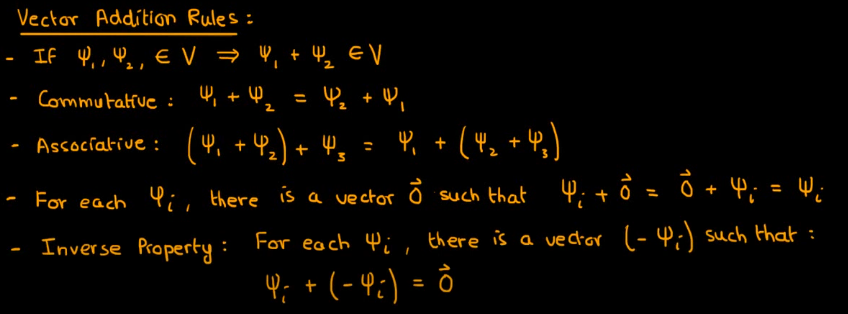 Vector Addition Rules:
- If Ψ₁, Ψ₂, ∈ V ⇒ Ψ₁ + Ψ₂ ∈ V
- Commutative: Ψ₁ + Ψ₂ = Ψ₂ + Ψ₁
- Associative: (Ψ₁ + Ψ₂) + Ψ₃ = Ψ₁ + (Ψ₂ + Ψ₃)
- For each Ψᵢ, there is a vector 0⃗ such that Ψᵢ + 0⃗ = 0⃗ + Ψᵢ = Ψᵢ
- Inverse Property: For each Ψᵢ, there is a vector (-Ψᵢ) such that:
Ψᵢ + (-Ψᵢ) = 0⃗